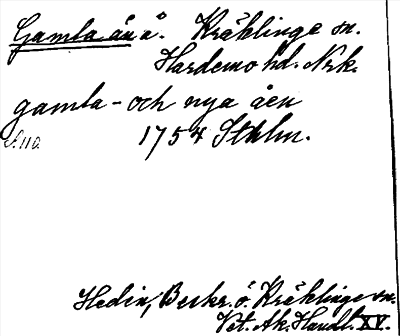 Gamla ån å. Kräklinge sn.
Hardemo hd. Nrk.
gamla- och nya åen
S. 110. 1754 Sthlm.
Hedin, Beskr. ö. Kräklinge sn.
Vet. Ak. Handl. XV.